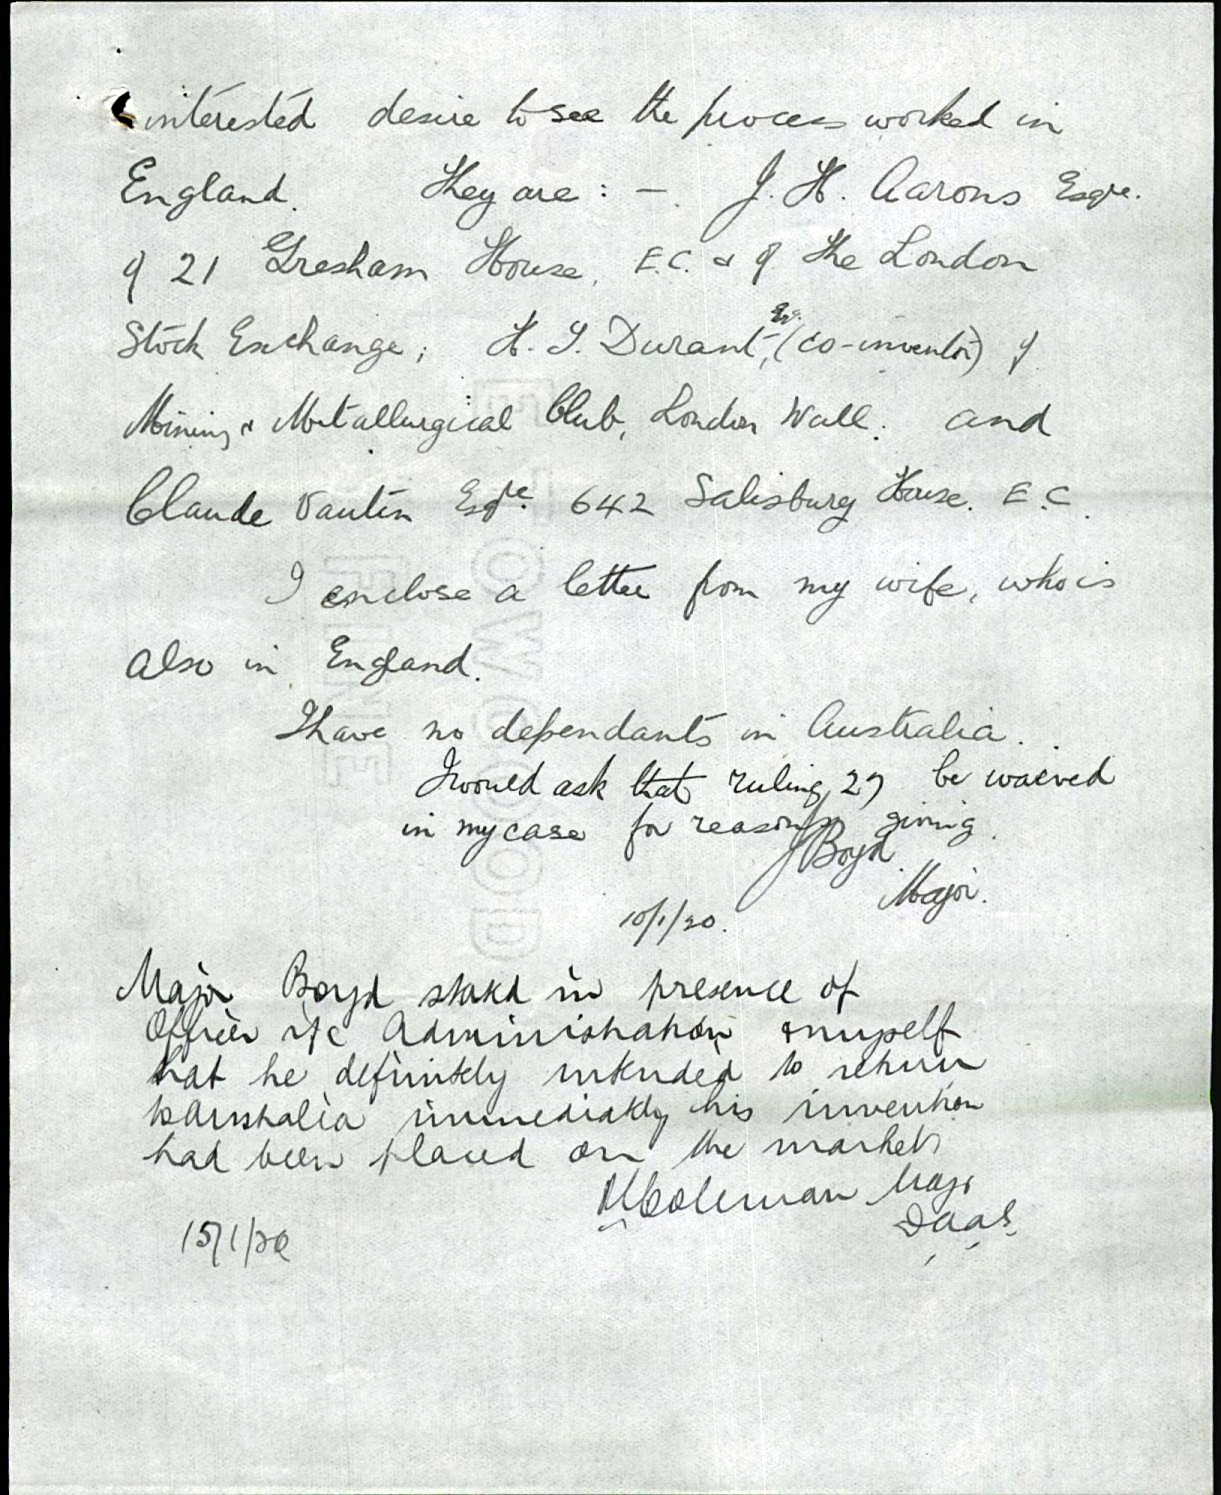 interested desire to see the process worked in
England. They are: — J. H. Aarons Esqre.
of 21 Gresham House, E.C. & of the London
Stock Exchange; H. T. Durant, Esq. (co-inventor) of
Mining & Metallurgical Club, London Wall. and
Claude Vautin Esqre. 642 Salisbury House. E.C.
I enclose a letter from my wife, who is
also in England.
I have no dependants in Australia.
I would ask that ruling 27 be waived
in my case for reasons giving.
J Boyd
Major.
10/1/20.
Major Boyd stated in presence of
Officer i/c Administration & myself
that he definitely intended to return
to Australia immediately his invention
had been placed on the market
Coleman Major
DAAG.
15/1/20
FINE